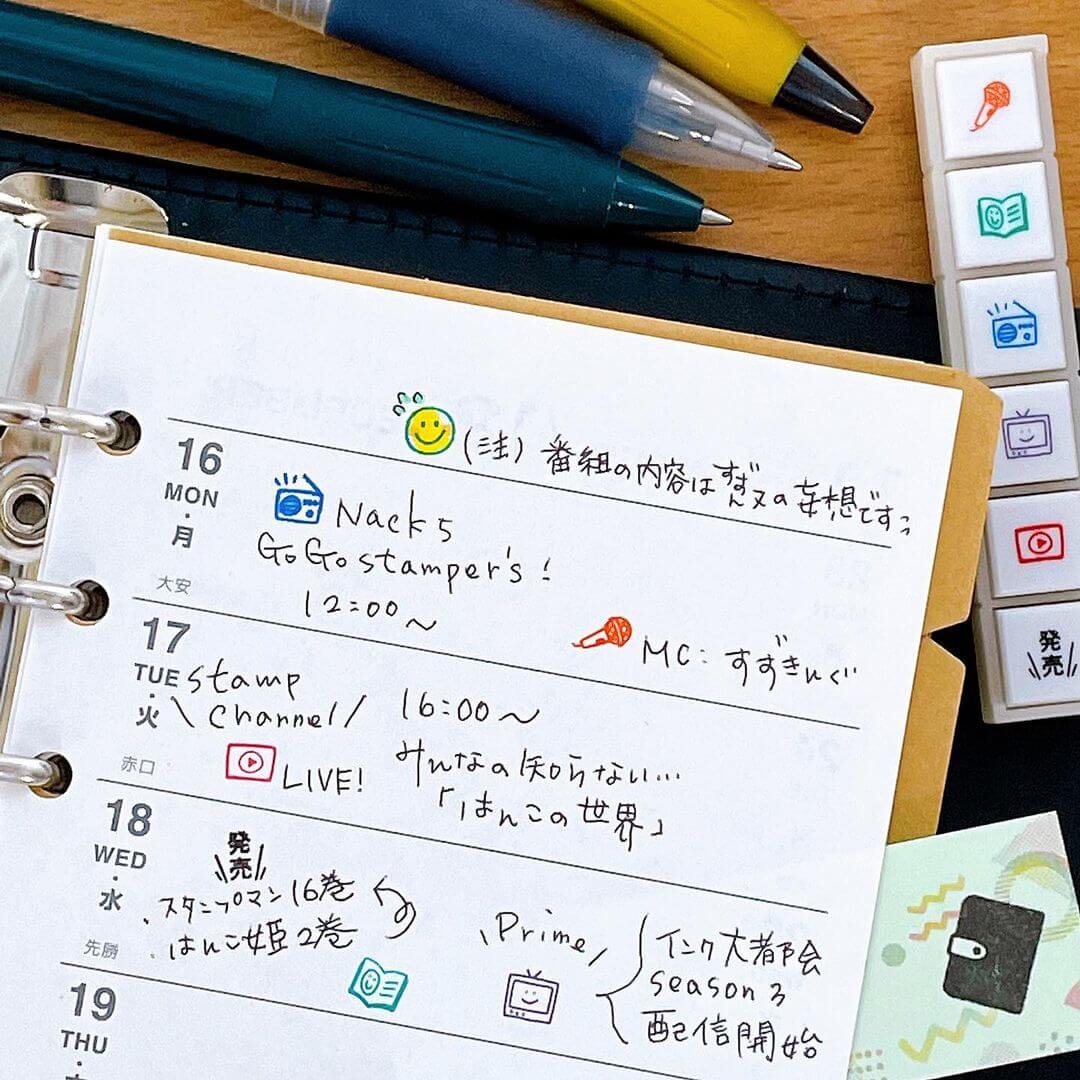 (注) 番組の内容はすずんヌの妄想です
16
MON
・
月
大安
Nack5
GoGo stamper's!
12:00～
MC: すずきんぐ
17
TUE
・
火
赤口
stamp
\ channel /
LIVE!
16:00～
みんなの知らない…
「はんこの世界」
18
WED
・
水
先勝
発
\売/
・スタンプマン16巻
・はんこ姫2巻
\Prime/
インク大都会
season 3
配信開始
19
THU
発
\売/